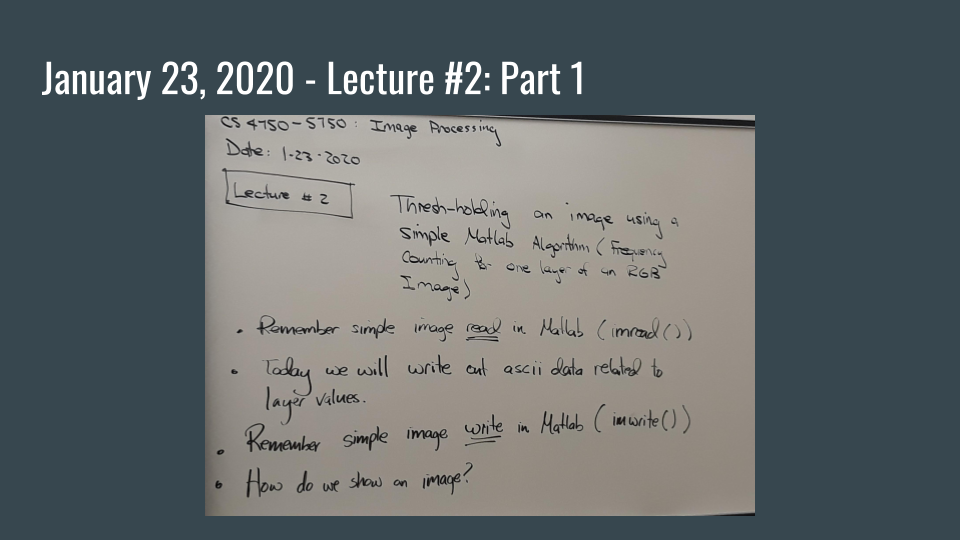 January 23, 2020 - Lecture #2: Part 1
CS 4750-5750 : Image Processing
Date: 1-23-2020
Lecture # 2
Thresh-holding an image using a
simple Matlab Algorithm (Frequency
Counting for one layer of an RGB
Image)
• Remember simple image read in Matlab (imread())
• Today we will write out ascii data related to
layer values.
• Remember simple image write in Matlab (imwrite())
• How do we show an image?